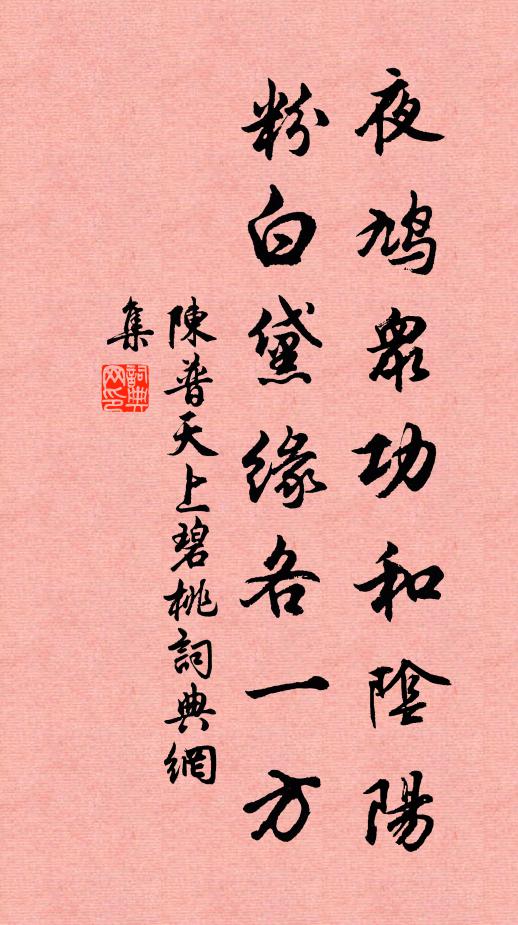 夜鳩衆功和陰陽
粉白黛緣各一方
陳普天上碧桃詞典網
集
詞典網印